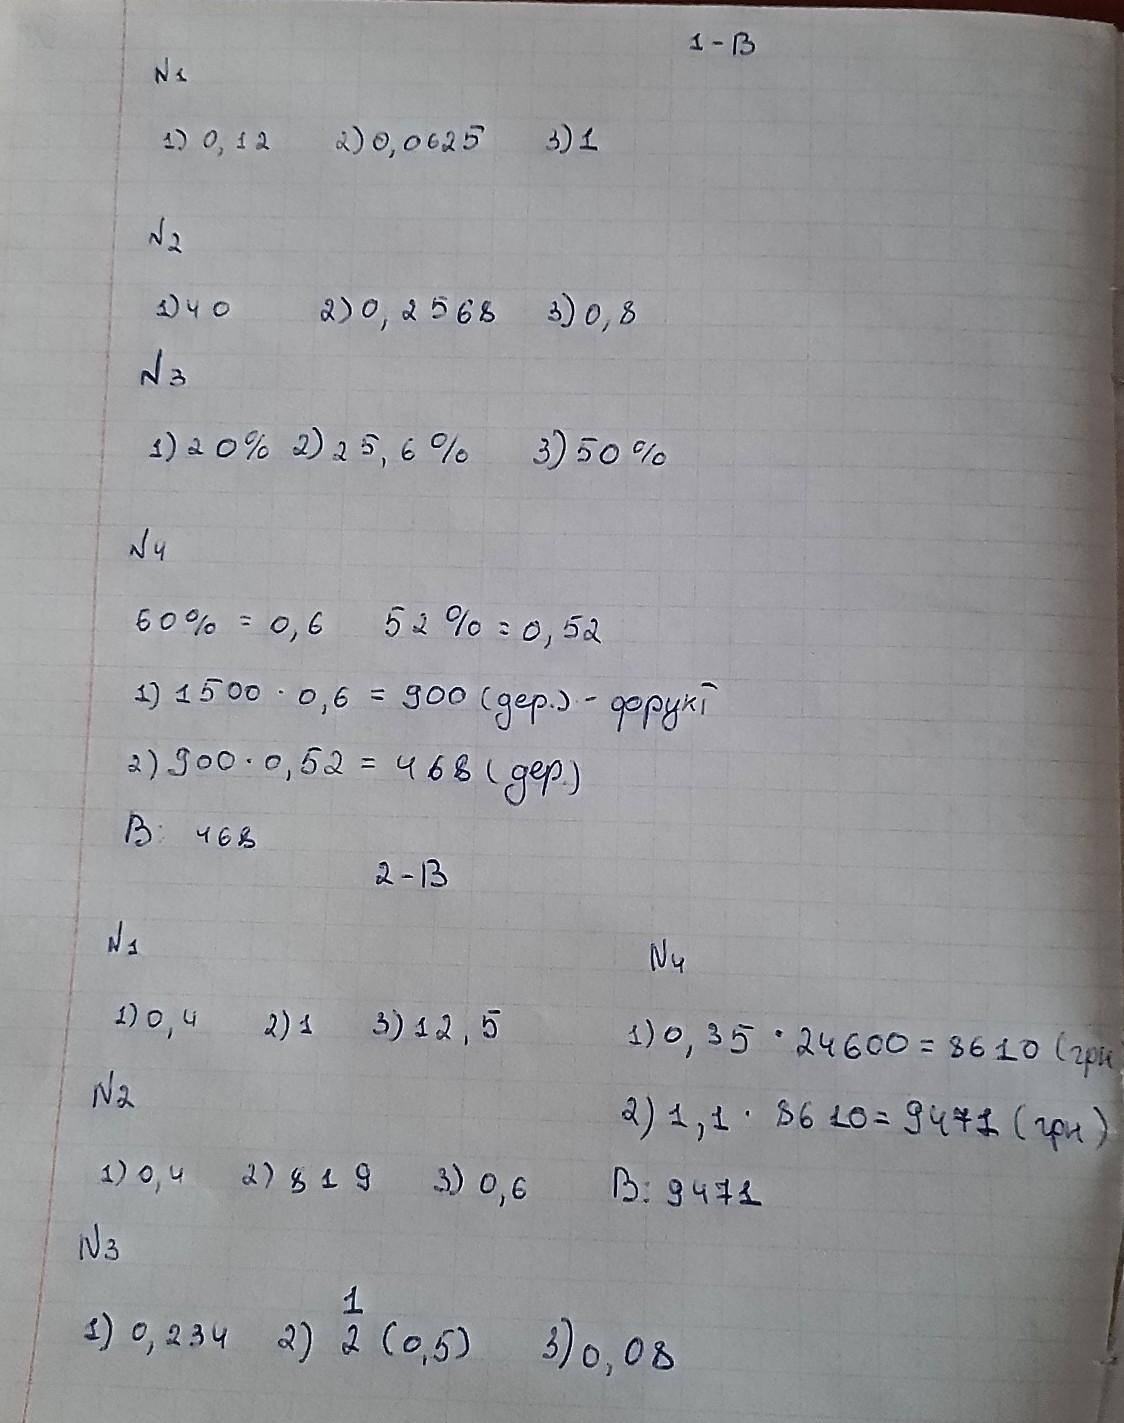 1-В
N1
1) 0,12 2) 0,0625 3) 1
N2
1) 40 2) 0,2568 3) 0,8
N3
1) 20% 2) 25,6% 3) 50%
N4
60% = 0,6 52% = 0,52
1) 1500 · 0,6 = 900 (дер.) - форукї
2) 900 · 0,52 = 468 (дер.)
В: 468
2-В
N1
1) 0,4 2) 1 3) 12,5
N2
1) 0,4 2) 819 3) 0,6
N3
1) 0,234 2) 1/2 (0,5) 3) 0,08
N4
1) 0,35 · 24600 = 8610 (грн
2) 1,1 · 8610 = 9471 (грн)
В: 9471